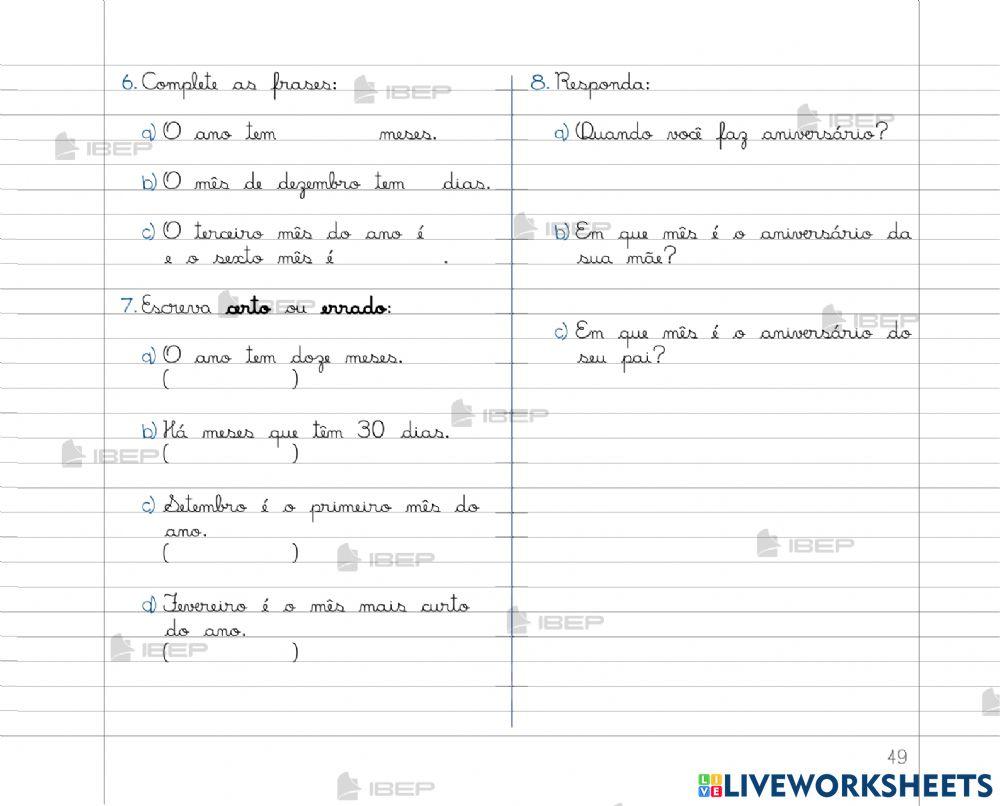 6. Complete as frases:
a) O ano tem meses.
b) O mês de dezembro tem dias.
c) O terceiro mês do ano é
e o sexto mês é .
7. Escreva certo ou errado:
a) O ano tem doze meses.
( )
b) Há meses que têm 30 dias.
( )
c) Setembro é o primeiro mês do
ano.
( )
d) Fevereiro é o mês mais curto
do ano.
( )
8. Responda:
a) Quando você faz aniversário?
b) Em que mês é o aniversário da
sua mãe?
c) Em que mês é o aniversário do
seu pai?
49
IBEP
IBEP
IBEP
IBEP
IBEP
IBEP
IBEP
IBEP
IBEP
IBEP
IBEP
IBEP
IBEP
LIVE LIVEWORKSHEETS